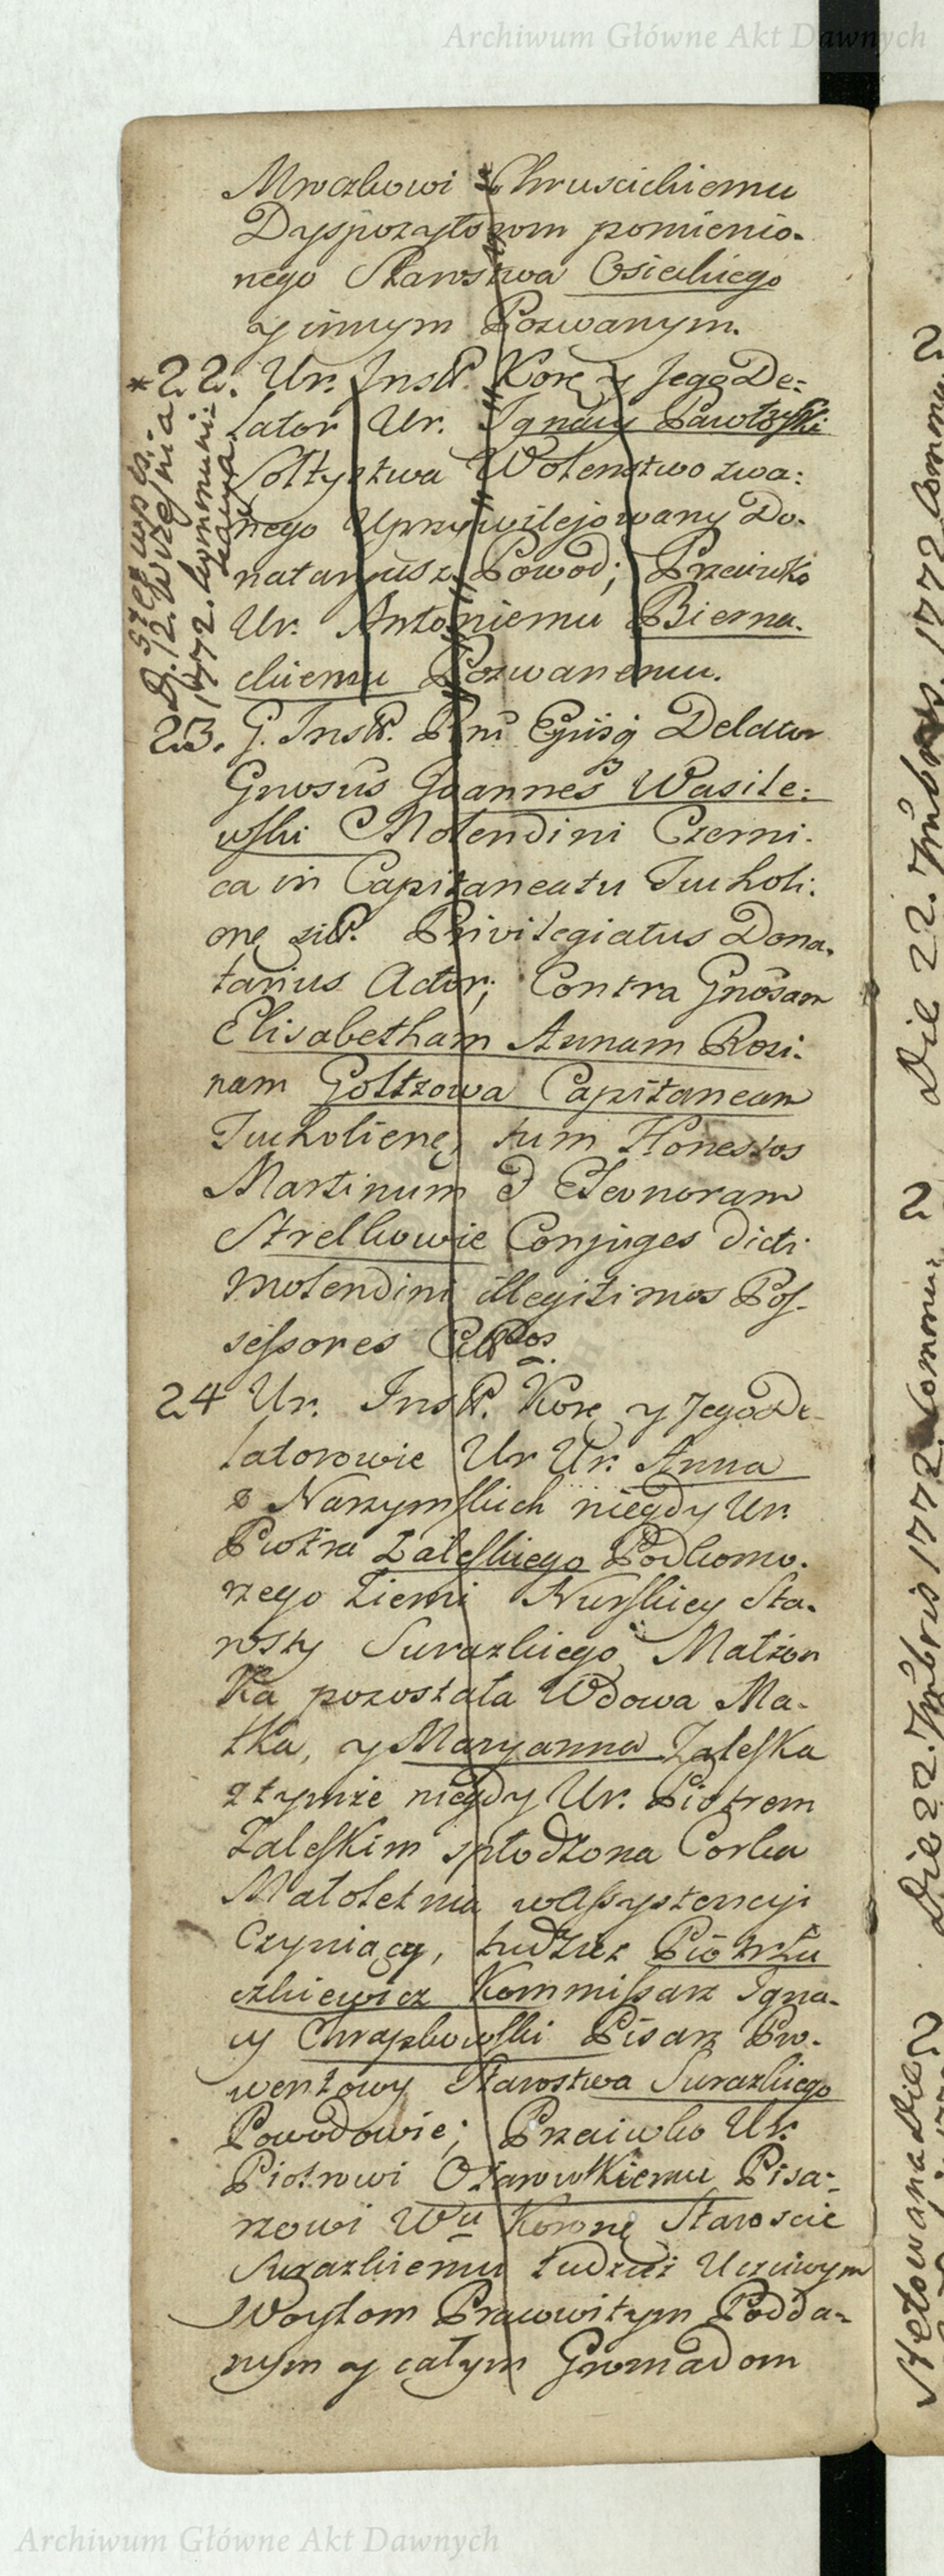 Archiwum Główne Akt Dawnych
Mroczkowi Chruscickiemu
Dyspozytorom pomienio-
nego Starostwa Osieckiego
y innym Pozwanym.
*22. Ur. Inst. Kore y Jego De:
lator Ur. Ignacy Pawłowski
Sołtystwa Wolenstwo zwa:
nego Uprzywilejowany Do-
nataryusz Powod; Przeciwko
Ur. Antoniemu Bierna-
ckiemu Pozwanemu.
23. G. Inst. Rni Ejusq Delator
Gnosus Joannes Wasile:
wski Molendini Czerni-
ca in Capitaneatu Tucholi:
one sit. Privilegiatus Dona-
tarius Actor; Contra Gnosam
Elisabetham Annam Rosi-
nam Goltzowa Capitaneam
Tucholiens, tum Honestos
Martinum & Eleonoram
Strelkowie Conjuges dicti
Molendini illegitimos Pos-
sessores Cittos.
24 Ur. Inst. Kore y Jego De-
latorowie Ur Ur. Anna
z Narzymskich niegdy Ur.
Piotra Zaleskiego Podkomo-
rzego Ziemi Nurskiey Sta-
rosty Surazkiego Małżon
ka pozostała Wdowa Ma-
tka, y Maryanna Zaleska
z tymże niegdy Ur. Piotrem
Zaleskim spłodzona Corka
Małoletnia w Assystencyi
Czyniący, tudzież Piotr
czkiewicz Kommissarz Igna-
cy Chrapkowski Pisarz Pro-
wentowy Starostwa Surazkiego
Powodowie; Przeciwko Ur.
Piotrowi Ożarowskiemu Pisa-
rzowi Wu Koronę Staroscie
Surazkiemu tudzież Uczciwym
Woytom Pracowitym Podda-
nym y całym Gromadom
D. 12. Września
1772.
Die 22. 7mbris 1772
Die 22. 7mbris 1772
Archiwum Główne Akt Dawnych